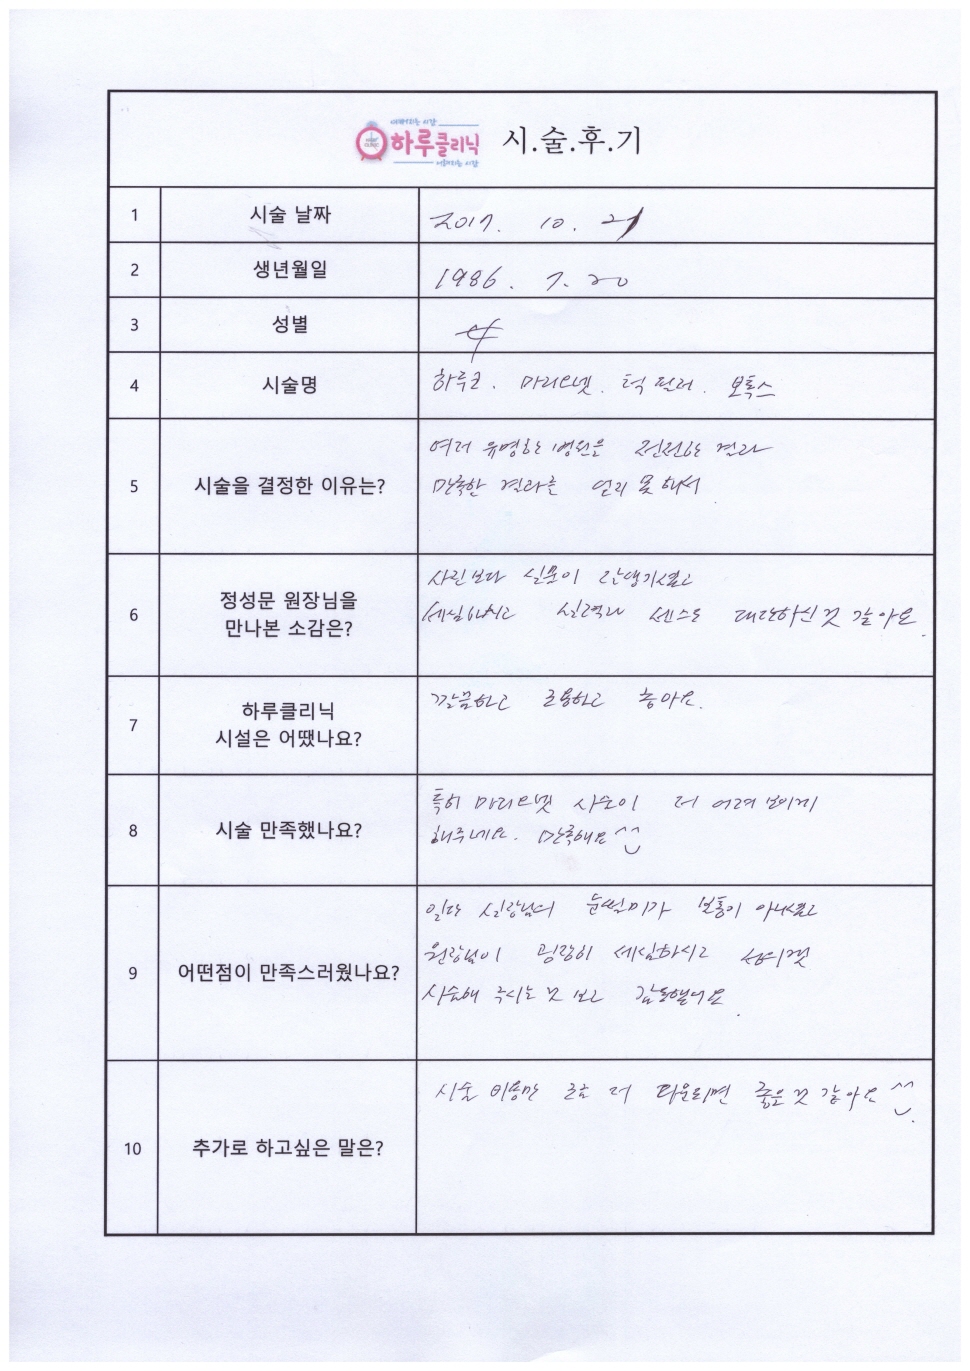 예뻐지는 시간
하루클리닉 시.술.후.기
어려지는 시간
1 시술 날짜 2017. 10. 21
2 생년월일 1986. 7. 20
3 성별 女
4 시술명 하루코. 마리오넷. 턱필러. 보톡스
여러 유명한 병원을 전전한 결과
5 시술을 결정한 이유는? 만족한 결과를 얻지 못해서.
사진보다 실물이 잘생기셨고
6 정성문 원장님을 만나본 소감은? 세심하시고 실력과 센스도 대단하신 것 같아요.
7 하루클리닉 시설은 어땠나요? 깔끔하고 조용하고 좋아요.
특히 마리오넷 시술이 더 어려 보이게
8 시술 만족했나요? 해주네요. 만족해요^^
일단 실장님의 눈썰미가 보통이 아니셨고
9 어떤점이 만족스러웠나요? 원장님이 굉장히 세심하시고 성의껏
시술해 주시는 것 보고 감동했어요.
시술 비용만 조금 더 다운되면 좋은 것 같아요^^.
10 추가로 하고싶은 말은?